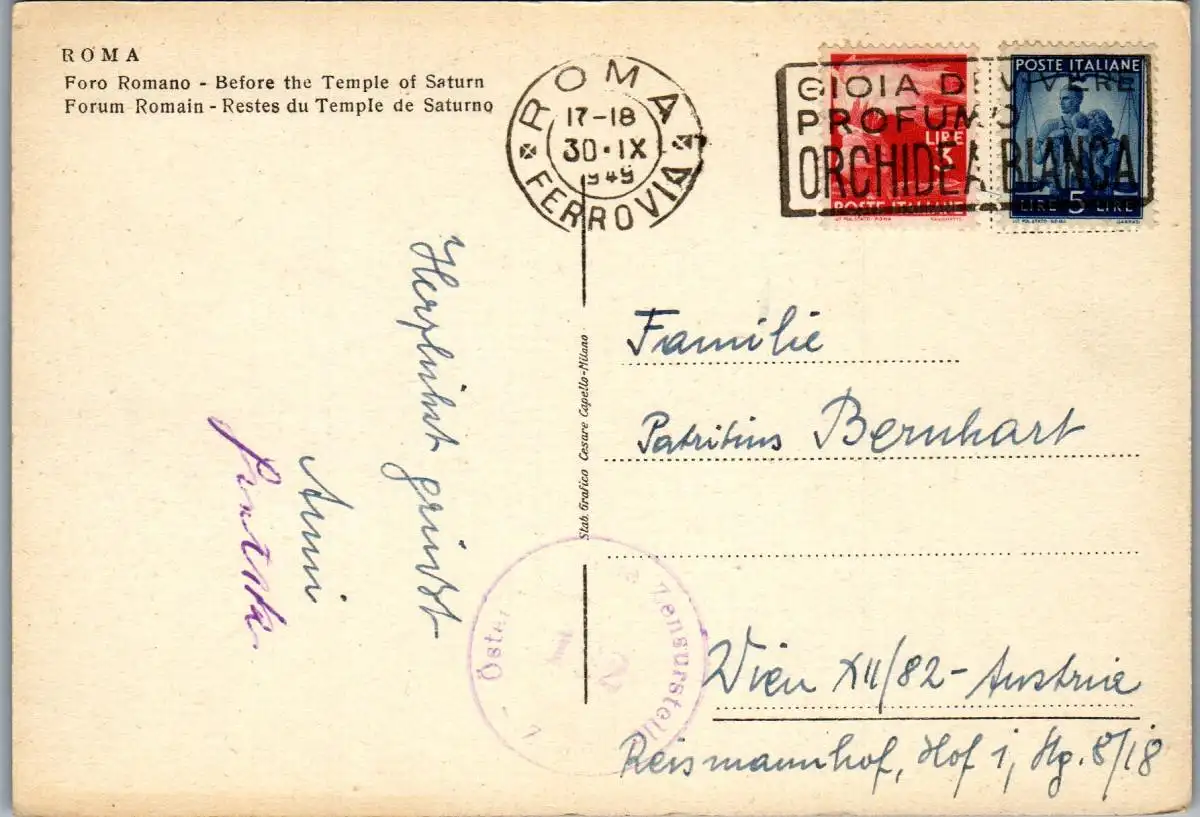 ROMA
Foro Romano - Before the Temple of Saturn
Forum Romain - Restes du Temple de Saturno
ROMA
17-18
30·IX
1949
FERROVIA
GIOIA DI VIVERE
PROFUMO
ORCHIDEA BIANCA
LIRE
3
POSTE ITALIANE
POSTE ITALIANE
LIRE 5 LIRE
Herzlichst grüßt
Anni
Stab. Grafico Cesare Capello-Milano
Familie
Patritius Bernhart
Wien XII/82-Austria
Reismannhof, Hof 1, Stg. 8/18
Öster
Zensurstelle